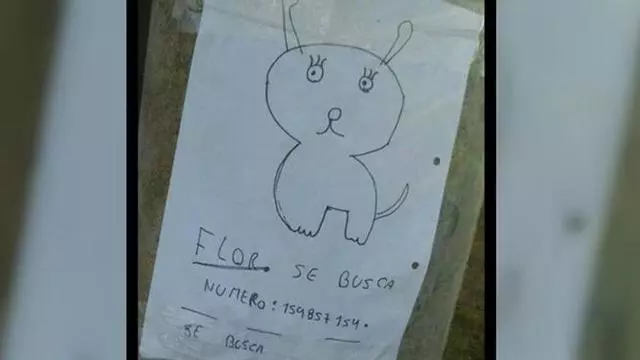 FLOR. SE BUSCA
NUMERO: 159857154.
SE BUSCA